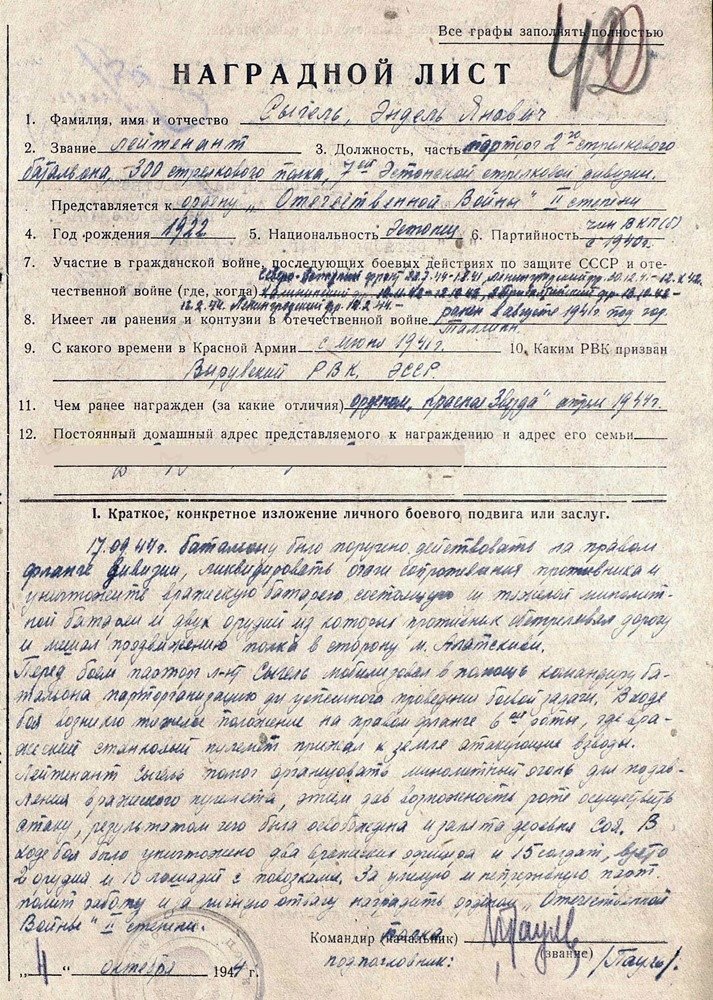 Все графы заполнять полностью
420
НАГРАДНОЙ ЛИСТ
1. Фамилия, имя и отчество Сыгель, Эндель Янович
2. Звание лейтенант 3. Должность, часть парторг 2го стрелкового
батальона, 300 стрелкового полка, 7ой Эстонской стрелковой дивизии.
Представляется к ордену „Отечественной Войны" II степени
4. Год рождения 1922 5. Национальность Эстонец 6. Партийность член ВКП(б)
с 1940г.
7. Участие в гражданской войне, последующих боевых действиях по защите СССР и оте-
чественной войне (где, когда) Северо-Западный фронт
12.2.44. Ленинградский фр. 12.2.44 —
8. Имеет ли ранения и контузии в отечественной войне ранен в августе 1941г. под гор.
Таллин.
9. С какого времени в Красной Армии с июля 1941г. 10. Каким РВК призван
Вырувский РВК, ЭССР.
11. Чем ранее награжден (за какие отличия) орденом „Красная Звезда" 1944г.
12. Постоянный домашный адрес представляемого к награждению и адрес его семьи
I. Краткое, конкретное изложение личного боевого подвига или заслуг.
17.09.44г. батальону было поручено действовать на правом
фланге дивизии, ликвидировать очаги сопротивления противника и
уничтожить вражескую батарею состоящую из тяжелой миномет-
ной батареи и двух орудий из которых противник обстреливал дорогу
и мешал продвижению полка в сторону м.
Перед боем парторг л-нт Сыгель мобилизовал в помощь командиру ба-
тальона парторганизацию для успешного проведения боевой задачи. В ходе
боя возникло тяжелое положение на правом фланге 6ой роты, где вра-
жеский станковый пулемет прижал к земле атакующие взводы.
Лейтенант Сыгель помог организовать минометный огонь для подав-
ления вражеского пулемета, этим дав возможность роте осуществить
атаку, результатом чего была освобождена и занята деревня Соя. В
ходе боя было уничтожено два вражеских офицера и 15 солдат, взято
2 орудия и 10 лошадей с повозками. За умелую и непрерывную парт.
полит работу и за личную отвагу наградить орденом „Отечественной
Войны" II степени.
Командир (начальник) полка
подполковник: (звание) /Пауль/.
„4" октября 1944 г.